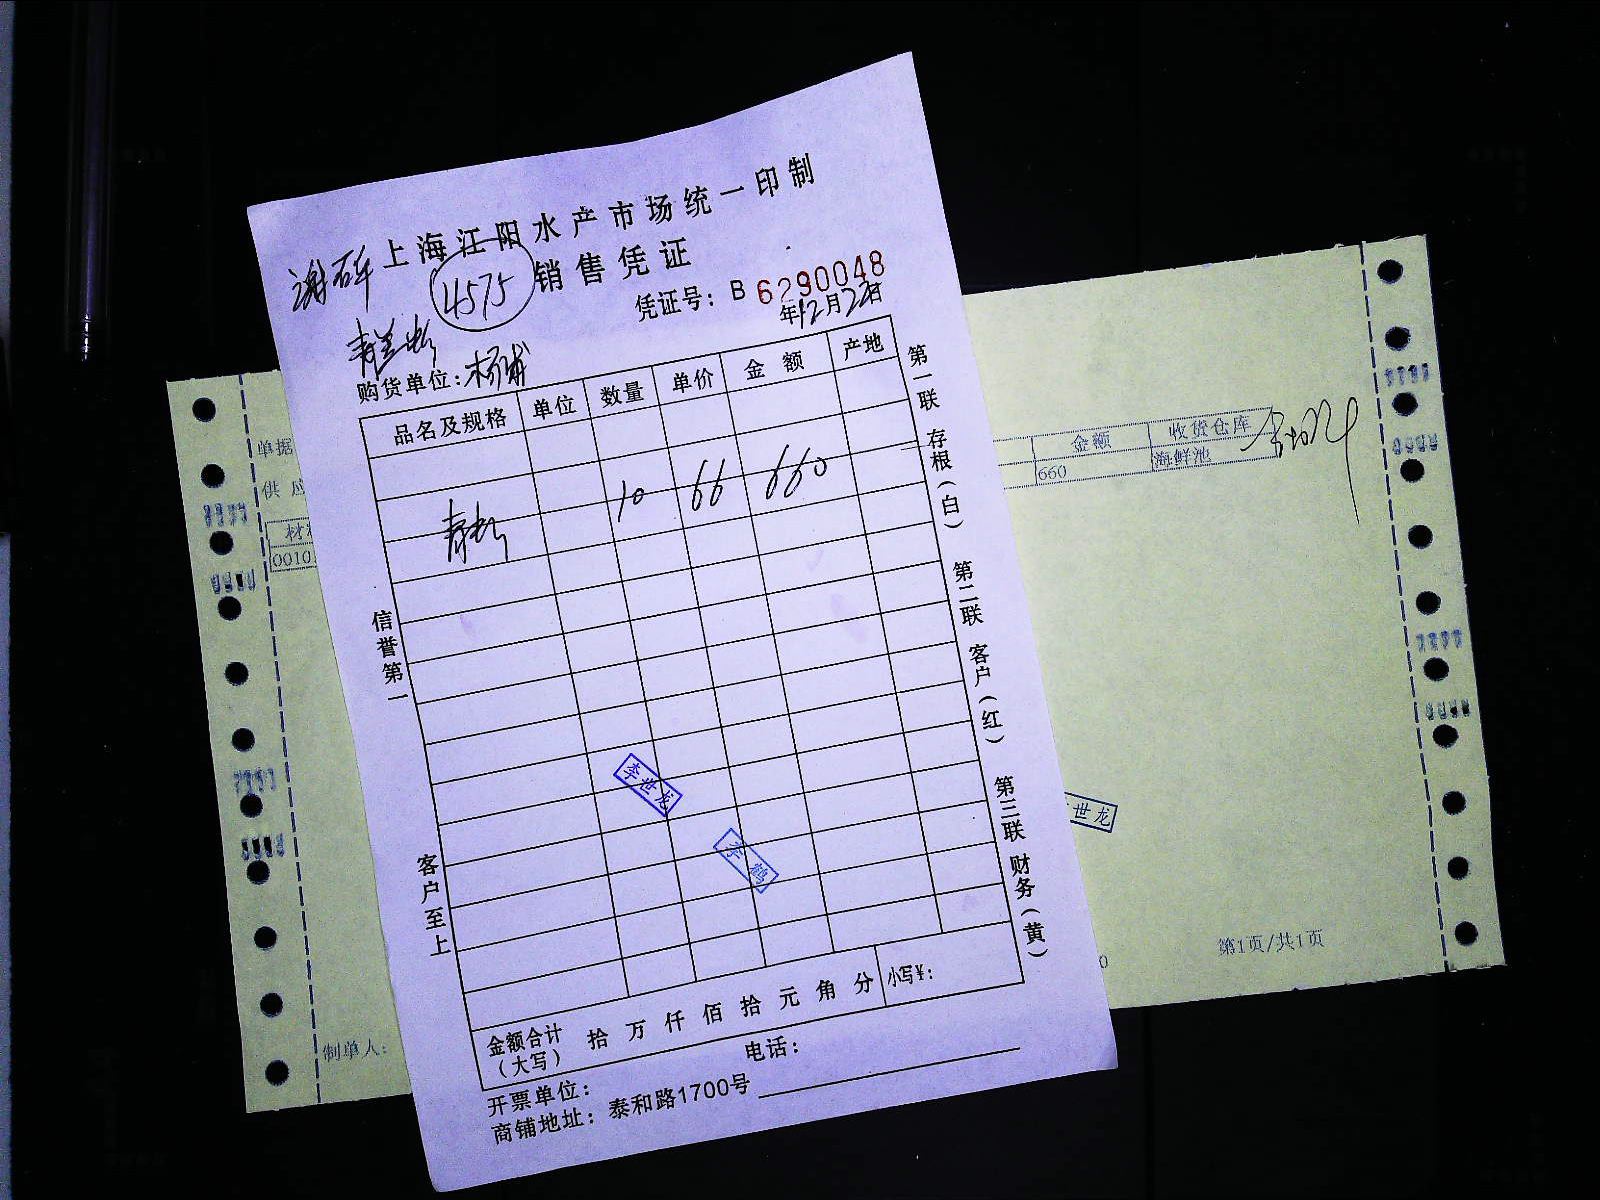 上海江阳水产市场统一印制
4575 销售凭证
凭证号：B 6290048
年12月22日
购货单位：杨浦
品名及规格 单位 数量 单价 金额 产地
10 66 660
信誉第一
客户至上
第一联 存根（白） 第二联 客户（红） 第三联 财务（黄）
李世龙
李鹤
金额合计（大写） 拾 万 仟 佰 拾 元 角 分 小写¥：
开票单位： 电话：
商铺地址：泰和路1700号
单据
供应
0010
制单人：
金额 收货仓库
660 海鲜池
世龙
第1页/共1页